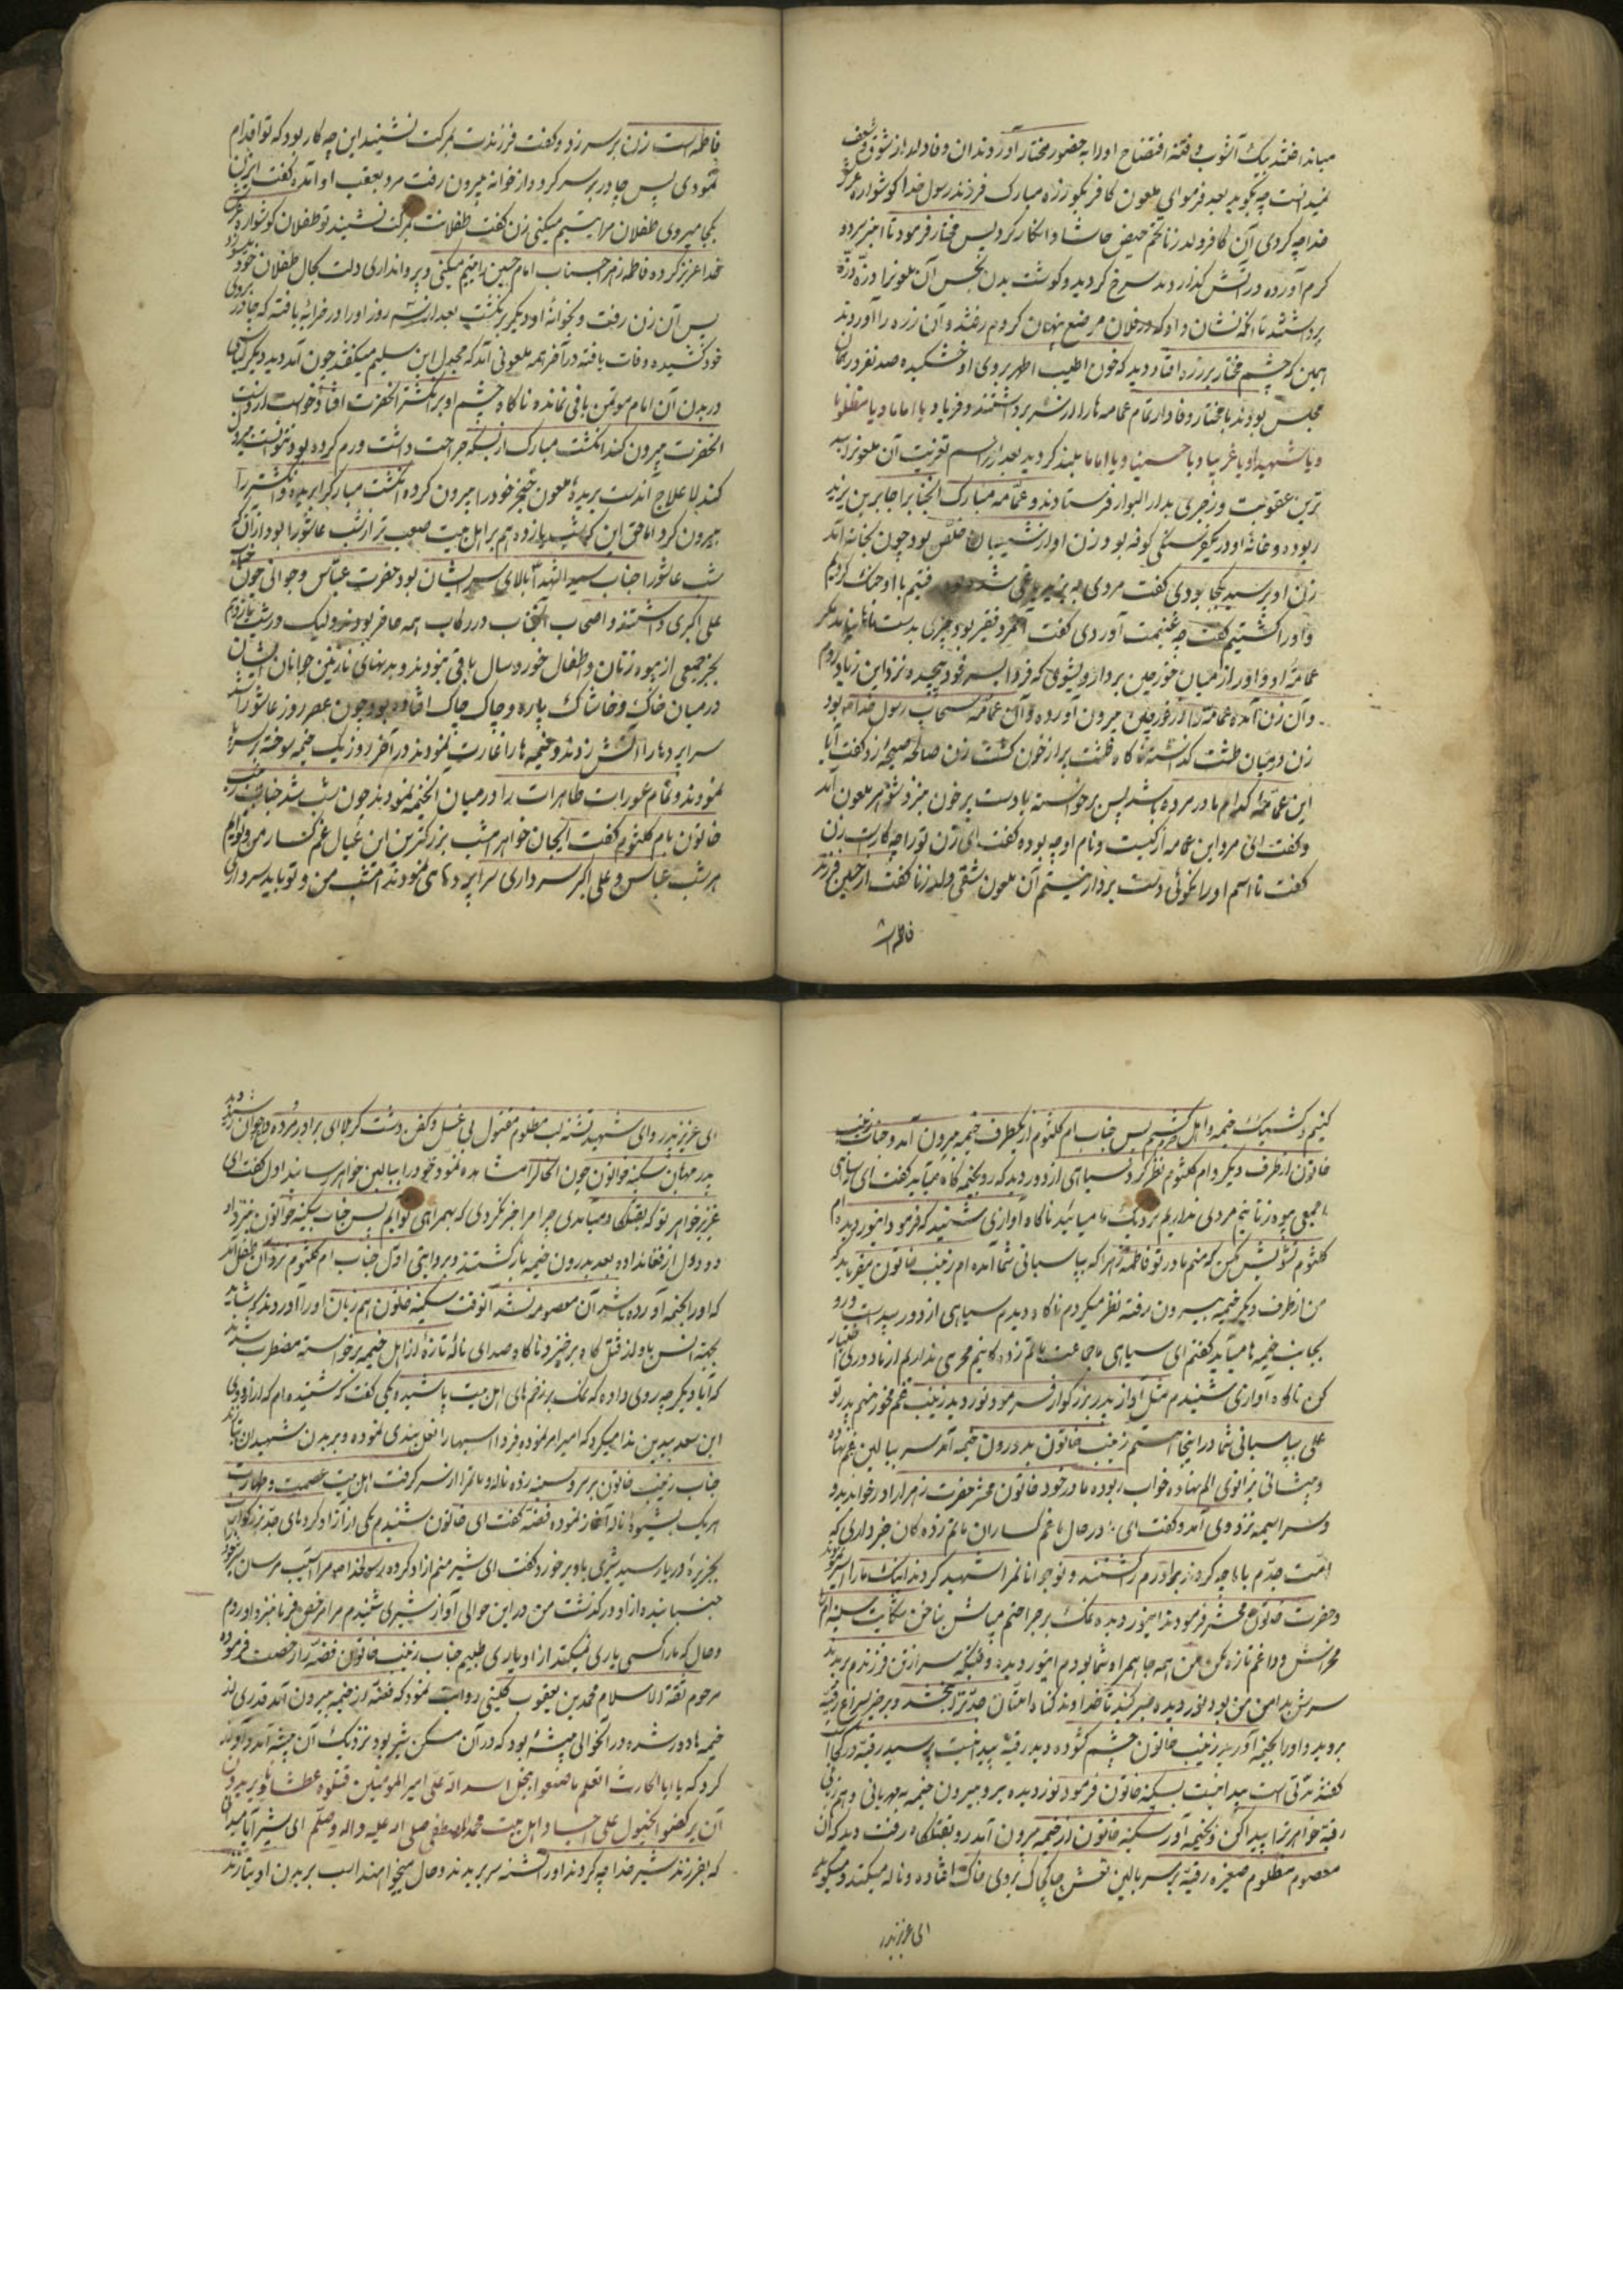 میانداختند یک آشوب و فتنه افتضاح اورا به حضور مختار آوردند ان وفادار از شوق و شعف
نمیدانست چه بگوید بعد فرمود ای ملعون کافر بگو زره مبارک فرزند رسول خدا گوشواره عرش
خدا چه کردی آن کافر ولد زنا تخم حیض حاشا و انکار کرد پس مختار فرمود تا انبر برده
گرم آورده در آتش گذاردند سرخ گردید و گوشت بدن نجس آن ملعونرا ذره ذره
برداشتند تا آنکه نشان داد که در فلان موضع پنهان کردم رفتند و آن زره را آوردند
همین که چشم مختار بر زره افتاد دید که خون اطیب اطهر بروی او خشکیده صد نفر در آن
مجلس بودند با مختار وفادار تمام عمامه ها را از سر برداشتند و فریاد یا اماما و یا مظلوما
و یا شهیدا و یا غریبا و یا حسینا و یا اماما بلند کردند بعد از مراسم تعزیت آن ملعونرا بد
ترین عقوبت و زجری بدار البوار فرستادند و عمامه مبارک آنجنابرا جابر بن یزید
ربوده و خانه او در یکفرسنگی کوفه بود و زن او از شیعیان خلص بود چون بخانه آمد
زن او پرسید کجا بودی گفت مردی بر یزید یاغی شده بود رفتیم با او جنگ کردیم
و اورا کشتیم گفت چه غنیمت آوردی گفت آنمرد فقیر بود چیزی بدست ما نیامد مگر
عمامهٔ او و اورا از میان خورجین بردار و بشوی که فردا بسر خود پیچیده نزد ابن زیاد روم
و آن زن آمده عمامه را از خورجین بیرون آورده و آن عمامه سحاب رسول خدا ص بود
زن در میان طشت گذاشته ناگاه طشت پر از خون گشت زن صالحه صیحه زد گفت آیا
این عمامه کدام مادر مرده باشد پس برخواسته با دست پر خون نزد شوهر ملعون آمد
و گفت ای مرد این عمامه از کیست و نام او چه بوده گفت ای زن تورا چه کار است زن
گفت تا اسم او را نگوئی دست بردار نیستم آن ملعون شقی ولد زنا گفت از حسین فرزند
فاطمه است
فاطمه است زن بر سر زد و گفت فرزندت بمرگت نشیند این چه کار بود که تو اقدام
نمودی پس چادر بر سر کرد و از خانه بیرون رفت مرد بعقب او آمده گفت ای زن
بکجا میروی طفلان مرا یتیم میکنی زن گفت طفلانت بمرگت نشیند تو طفلان گوشواره عرش
خدا عزیز کرده فاطمه زهرا جناب امام حسین را یتیم میکنی و پروا نداری دلت بحال طفلان خود میسوزد
پس آن زن رفت و بخوانه او دیگر برنگشت بعد از سه روز اورا در خرابهٔ یافته که چادر بروی
خود کشیده وفات یافته در آخر همه ملعونی آمد که بجدل ابن سلیم میگفتند چون آمد دید دیگر لباسی
در بدن آن امام موتمن باقی نمانده ناگاه چشم او بر انگشتر آنحضرت افتاد خواست از دست
آنحضرت بیرون کند انگشت مبارک از بسکه جراحت داشت ورم کرده بود نتوانست بیرون
کند لا علاج آندست بریده ملعون خنجر خود را بیرون کرده انگشت مبارکرا بریده و انگشتر را
بیرون کرد اما حق این که شب یازدهم بر اهل بیت صعب تر از شب عاشورا بود از آنکه
شب عاشورا جناب سید الشهدا بالای سر ایشان بود حضرت عباس و جوانی چون جناب
علی اکبری داشتند و اصحاب آنجناب در رکاب همه حاضر بودند ولیک در شب یازدهم
بجز جمعی از بیوه زنان و طفلان خورد سال باقی نبودند و بدنهای نازنین جوانان ایشان
در میان خاک و خاشاک پاره و چاک چاک افتاده بود چون عصر روز عاشورا شد
سراپردها را آتش زدند و خیمه ها را غارت نمودند در آخر روز یک خیمه سوخته بر سر پا
نمودند و تمام عورات طاهرات را در میان آنخیمه نمودند چون شب شد جناب زینب
خاتون بام کلثوم گفت ایجان خواهر امشب بزرگترین این عیال غم گسار من و توایم
هر شب عباس و علی اکبر سرداری سراپردهای نمودند امشب من و تو باید سرداری
کنیم و کشیک خیمه و اهل حرم کشیم پس جناب ام کلثوم از یکطرف خیمه بیرون آمد و جناب زینب
خاتون از طرف دیگر و ام کلثوم نظر کرد سیاهی از دور دید که رو بخیمه گاه میآید گفت ای سیاهی
ما جمعی بیوه زنانیم مردی نداریم نزدیک ما میائید ناگاه آوازی شنید که فرمود اینور دیده ام
کلثوم تشویش مکن که منم مادر تو فاطمه زهرا که بپاسبانی شما آمده ام زینب خاتون میفرماید که
من از طرف دیگر خیمه بیرون رفته نظر میکردم ناگاه دیدم سیاهی از دور پیداست و رو
بجانب خیمه ها میآید گفتم ای سیاهی ما جماعت ماتم زده گانیم محرمی نداریم از ما دوری اختیار
کن ناگاه آوازی شنیدم مثل آواز پدر بزرگوارم فرمود نور دیده زینب غم مخور منم پدر تو
علی بپاسبانی شما در اینجا هستم زینب خاتون بدرون خیمه آمد سر ببالین غم نهاده
و پیشانی بزانوی الم نهاده خواب ربوده مادر خود خاتون محشر حضرت زهرا را در خواب دید
و سراسیمه نزد وی آمد و گفت ای مادر حال ما غم گساران ماتم زده گان خبر داری که
امت جدم با ما چه کردند برادرم را کشتند و نوجوانانمرا شهید کردند اینک مارا اسیر نمودند
و حضرت خاتون محشر فرمودند اینور دیده نمک بر جراحتم مپاش بناخن شکایت سینه ام را
مخراش و داغم تازه مکن من همه جا همراه شما بودم اینور دیده وقتیکه سر از تن فرزندم بریدند
سرش بدامن من بود نور دیده صبر کنید تا خداوند گناه امتان جدتو را بخشد و برخیز بسراغ رقیه
بروید و اورا بخیمه آورید زینب خاتون چشم گشوده دید رقیه پیدا نیست پرسید رقیه در کجا
گفتند مدتی است پیدا نیست بسکینه خاتون فرمود نور دیده برو بیرون خیمه بمهربانی و بهم زبانی
رقیه خواهرترا پیدا کن و بخیمه آور سکینه خاتون از خیمه بیرون آمد رو بقتلگاه رفت دید که آن
معصوم مظلوم صغیره رقیه بر سر بالین نعش چاکچاک بروی خاک افتاده و ناله میکند و میگوید
ای عزیز پدر
ای عزیز پدر و ای شهید تشنه لب مظلوم مقتول بی غسل و کفن دشت کربلا ای برادر مرده
پدر مهربان سکینه خواتون چون انحالرا مشاهده نمود خود را ببالین خواهر رسانید اول گفت ای
عزیز خواهر تو که بقتلگاه میآمدی چرا مرا خبر نکردی که بهمراهی تو آیم پس جناب سکینه خواتون نیز داد
درد دل از فغان داده بعد بدرون خیمه بازگشتند و بروایتی اول جناب ام کلثوم نزد آن طفل آمد
که اورا بخیمه آورده باشد آن معصومه نشد آنوقت سکینه خاتون هم زبان اورا آوردند که شاید
بجهته انس باو از قتل گاه برخیزد ناگاه صدای نالهٔ تازه از اهل خیمه برخواسته مضطرب شدند
که آیا دیگر چه روی داده که نمک بر زخم های اهل بیت پاشیده یکی گفت که شنیده ام که از اردوی
ابن سعد بیدین ندا میکرد که امیر امر نموده فردا اسبها را نعل بندی نموده و بر بدن شهیدان بتازند
جناب زینب خاتون بر سر و سینه زده ناله و ماتم را از سر گرفت اهل بیت عصمت و طهارت
هر یک بشیوهٔ ناله آغاز نموده فضه گفت ای خاتون شنیدم یکی از آزاد کردهای جد بزرگوارت
بجزیرهٔ دریا رسید شیری باو برخورد گفت ای شیر منم آزاد کرده رسول خدا ص مرا آسیب مرسان شیر سر خود
جنبانیده از او درگذشت من در این حوالی آواز شیری شنیدم مرا مرخص فرما نزد او روم
و حال که ما را کسی یاری نمیکند از او یاری طلبیم جناب زینب خاتون فضه را رخصت فرموده
مرحوم ثقة الاسلام محمد بن یعقوب کلینی روایت نموده که فضه از خیمه بیرون آمد قدری از
خیمه ها دور شده در آنحوالی بیشهٔ بود که در آن مسکن شیر بود نزدیک آن بیشه آمد و آواز
کرد که یا ابا الحارث اتعلم ما صنعوا بنجل اسد الله علی امیر المومنین قتلوه عطشانا و یریدون
آن یرکضوا الخیول علی اجساد اهل بیت محمد المصطفی صلی الله علیه و اله و سلم ای شیر آیا میدانی
که بفرزند شیر خدا چه کردند اورا تشنه سر بریدند و حال میخواهند اسب بر بدن او بتازند